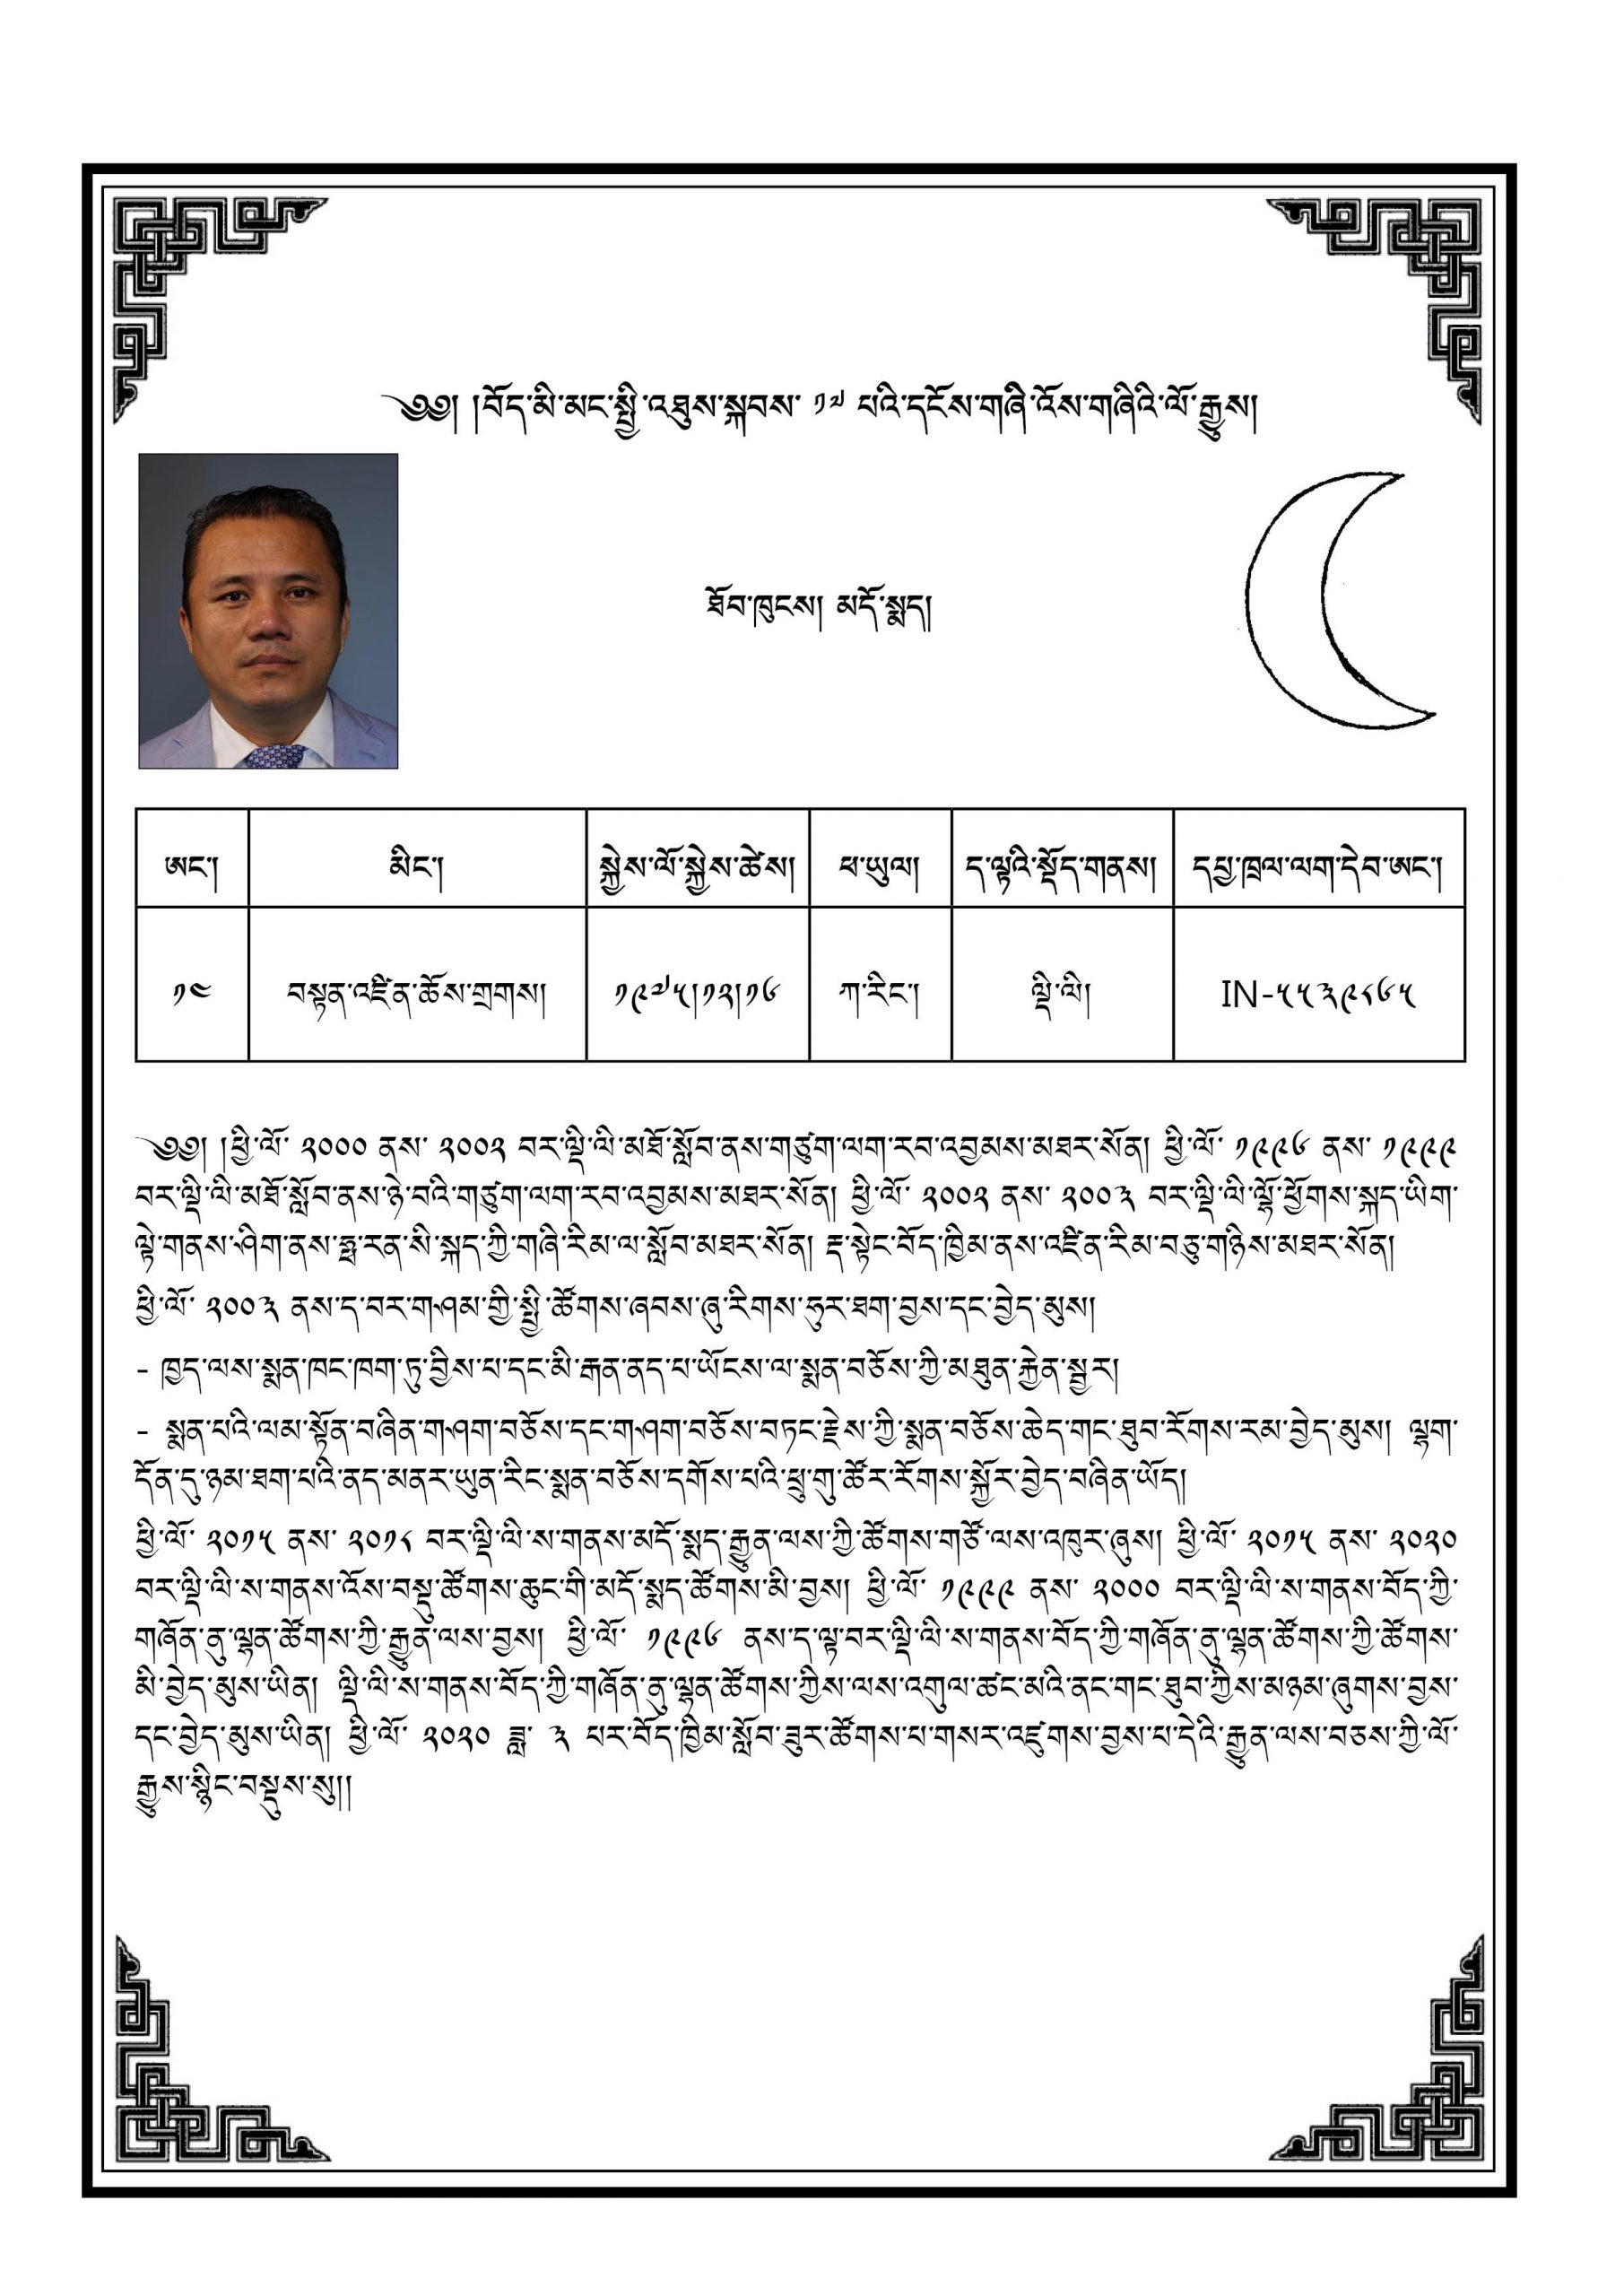 ༄༅། །བོད་མི་མང་སྤྱི་འཐུས་སྐབས་ ༡༧ པའི་དངོས་གཞི་འོས་གཞིའི་ལོ་རྒྱུས།
ཐོབ་ཁུངས། མདོ་སྨད།
ཨང་། མིང་། སྐྱེས་ལོ་སྐྱེས་ཚེས། ཕ་ཡུལ། ད་ལྟའི་སྡོད་གནས། དཔྱ་ཁྲལ་ལག་དེབ་ཨང་།
༡༤ བསྟན་འཛིན་ཆོས་གྲགས། ༡༩༧༥།༡༢།༡༦ ཀ་རིང་། ལྡི་ལི། IN-༥༥༣༩༨༦༥
༄༅། །ཕྱི་ལོ་ ༢༠༠༠ ནས་ ༢༠༠༢ བར་ལྡི་ལི་མཐོ་སློབ་ནས་གཙུག་ལག་རབ་འབྱམས་མཐར་སོན། ཕྱི་ལོ་ ༡༩༩༦ ནས་ ༡༩༩༩
བར་ལྡི་ལི་མཐོ་སློབ་ནས་ཉེ་བའི་གཙུག་ལག་རབ་འབྱམས་མཐར་སོན། ཕྱི་ལོ་ ༢༠༠༢ ནས་ ༢༠༠༣ བར་ལྡི་ལི་ལྷོ་ཕྱོགས་སྐད་ཡིག་
ལྟེ་གནས་ཤིག་ནས་ཧྥ་རན་སི་སྐད་ཀྱི་གཞི་རིམ་ལ་སློབ་མཐར་སོན། རྡ་སྟེང་བོད་ཁྱིམ་ནས་འཛིན་རིམ་བཅུ་གཉིས་མཐར་སོན།
ཕྱི་ལོ་ ༢༠༠༣ ནས་ད་བར་གཤམ་གྱི་སྤྱི་ཚོགས་ཞབས་ཞུ་རིགས་ཧུར་ཐག་བྱས་དང་བྱེད་མུས།
- ཁྱད་ལས་སྨན་ཁང་ཁག་ཏུ་བྱིས་པ་དང་མི་རྒན་ནད་པ་ཡོངས་ལ་སྨན་བཅོས་ཀྱི་མཐུན་རྐྱེན་སྦྱར།
- སྨན་པའི་ལམ་སྟོན་བཞིན་གཤག་བཅོས་དང་གཤག་བཅོས་བཏང་རྗེས་ཀྱི་སྨན་བཅོས་ཆེད་གང་ཐུབ་རོགས་རམ་བྱེད་མུས། ལྷག་
དོན་དུ་ཉམ་ཐག་པའི་ནད་མནར་ཡུན་རིང་སྨན་བཅོས་དགོས་པའི་ཕྲུ་གུ་ཚོར་རོགས་སྐྱོར་བྱེད་བཞིན་ཡོད།
ཕྱི་ལོ་ ༢༠༡༥ ནས་ ༢༠༡༨ བར་ལྡི་ལི་ས་གནས་མདོ་སྨད་རྒྱུན་ལས་ཀྱི་ཚོགས་གཙོ་ལས་འཁུར་ཞུས། ཕྱི་ལོ་ ༢༠༡༥ ནས་ ༢༠༢༠
བར་ལྡི་ལི་ས་གནས་འོས་བསྡུ་ཚོགས་ཆུང་གི་མདོ་སྨད་ཚོགས་མི་བྱས། ཕྱི་ལོ་ ༡༩༩༩ ནས་ ༢༠༠༠ བར་ལྡི་ལི་ས་གནས་བོད་ཀྱི་
གཞོན་ནུ་ལྷན་ཚོགས་ཀྱི་རྒྱུན་ལས་བྱས། ཕྱི་ལོ་ ༡༩༩༦ ནས་ད་ལྟ་བར་ལྡི་ལི་ས་གནས་བོད་ཀྱི་གཞོན་ནུ་ལྷན་ཚོགས་ཀྱི་ཚོགས་
མི་བྱེད་མུས་ཡིན། ལྡི་ལི་ས་གནས་བོད་ཀྱི་གཞོན་ནུ་ལྷན་ཚོགས་ཀྱིས་ལས་འགུལ་ཚང་མའི་ནང་གང་ཐུབ་ཀྱིས་མཉམ་ཞུགས་བྱས་
དང་བྱེད་མུས་ཡིན། ཕྱི་ལོ་ ༢༠༢༠ ཟླ་ ༣ པར་བོད་ཁྱིམ་སློབ་ཟུར་ཚོགས་པ་གསར་འཛུགས་བྱས་པ་དེའི་རྒྱུན་ལས་བཅས་ཀྱི་ལོ་
རྒྱུས་སྙིང་བསྡུས་སུ།།